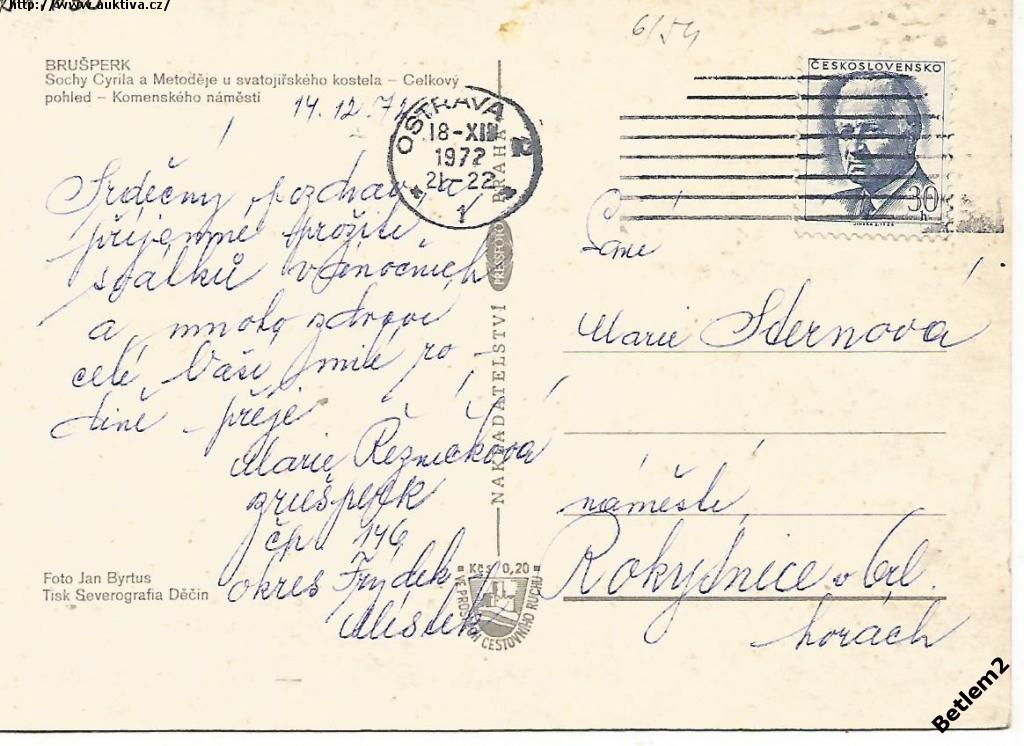 http://www.auktiva.cz/
6/54
BRUŠPERK
Sochy Cyrila a Metoděje u svatojiřského kostela – Celkový
pohled – Komenského náměstí
14. 12. 72
OSTRAVA 2
18-XII
1972
21-22
1
ČESKOSLOVENSKO
30
h
Srdečný pozdrav a
příjemné prožití
svátků vánočních
a mnoho zdraví
celé Vaší milé ro-
dině přeje
Marie Řezníčková
Brušperk
čp. 146
okres Frýdek
Místek
NAKLADATELSTVÍ PRESSFOTO PRAHA
Marie Sternová
náměstí
Rokytnice v Orl
horách
Foto Jan Byrtus
Tisk Severografia Děčín
Kčs 0,20
VE PROSPĚCH CESTOVNÍHO RUCHU
Betlem2